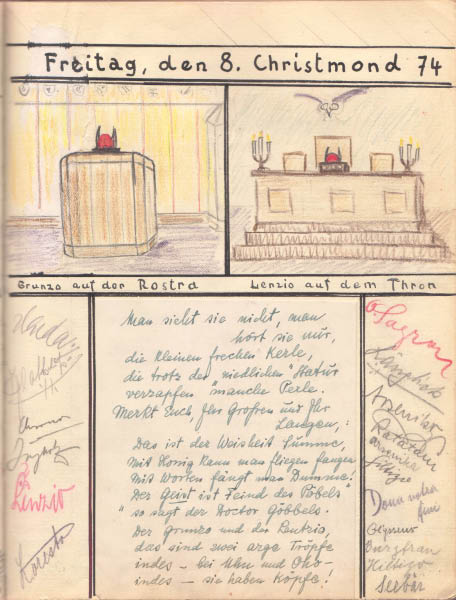 Freitag, den 8. Christmond 74
Grunzo auf der Rostra
Lenzio auf dem Thron
Man sieht sie nicht, man
hört sie nur,
die kleinen frechen Kerle,
die trotz der niedlichen Statur
verzapfen "manche Perle.
Merkt Euch, Ihr Großen und Ihr
Langen,:
Das ist der Weisheit Summe,
Mit Honig kann man fliegen fangen
Mit Worten fängt man Dumme!
Der Geist ist Feind des Pöbels"
so sagt der Doctor Göbbels.
Der Grunzo und der Lentzio,
das sind zwei arge Tröpfe
indes - bei Uhu und Oho -
indes - sie haben Köpfe!
Lenzio
Loresto
Ratazaur
Donna
Burgfrau
Seebär